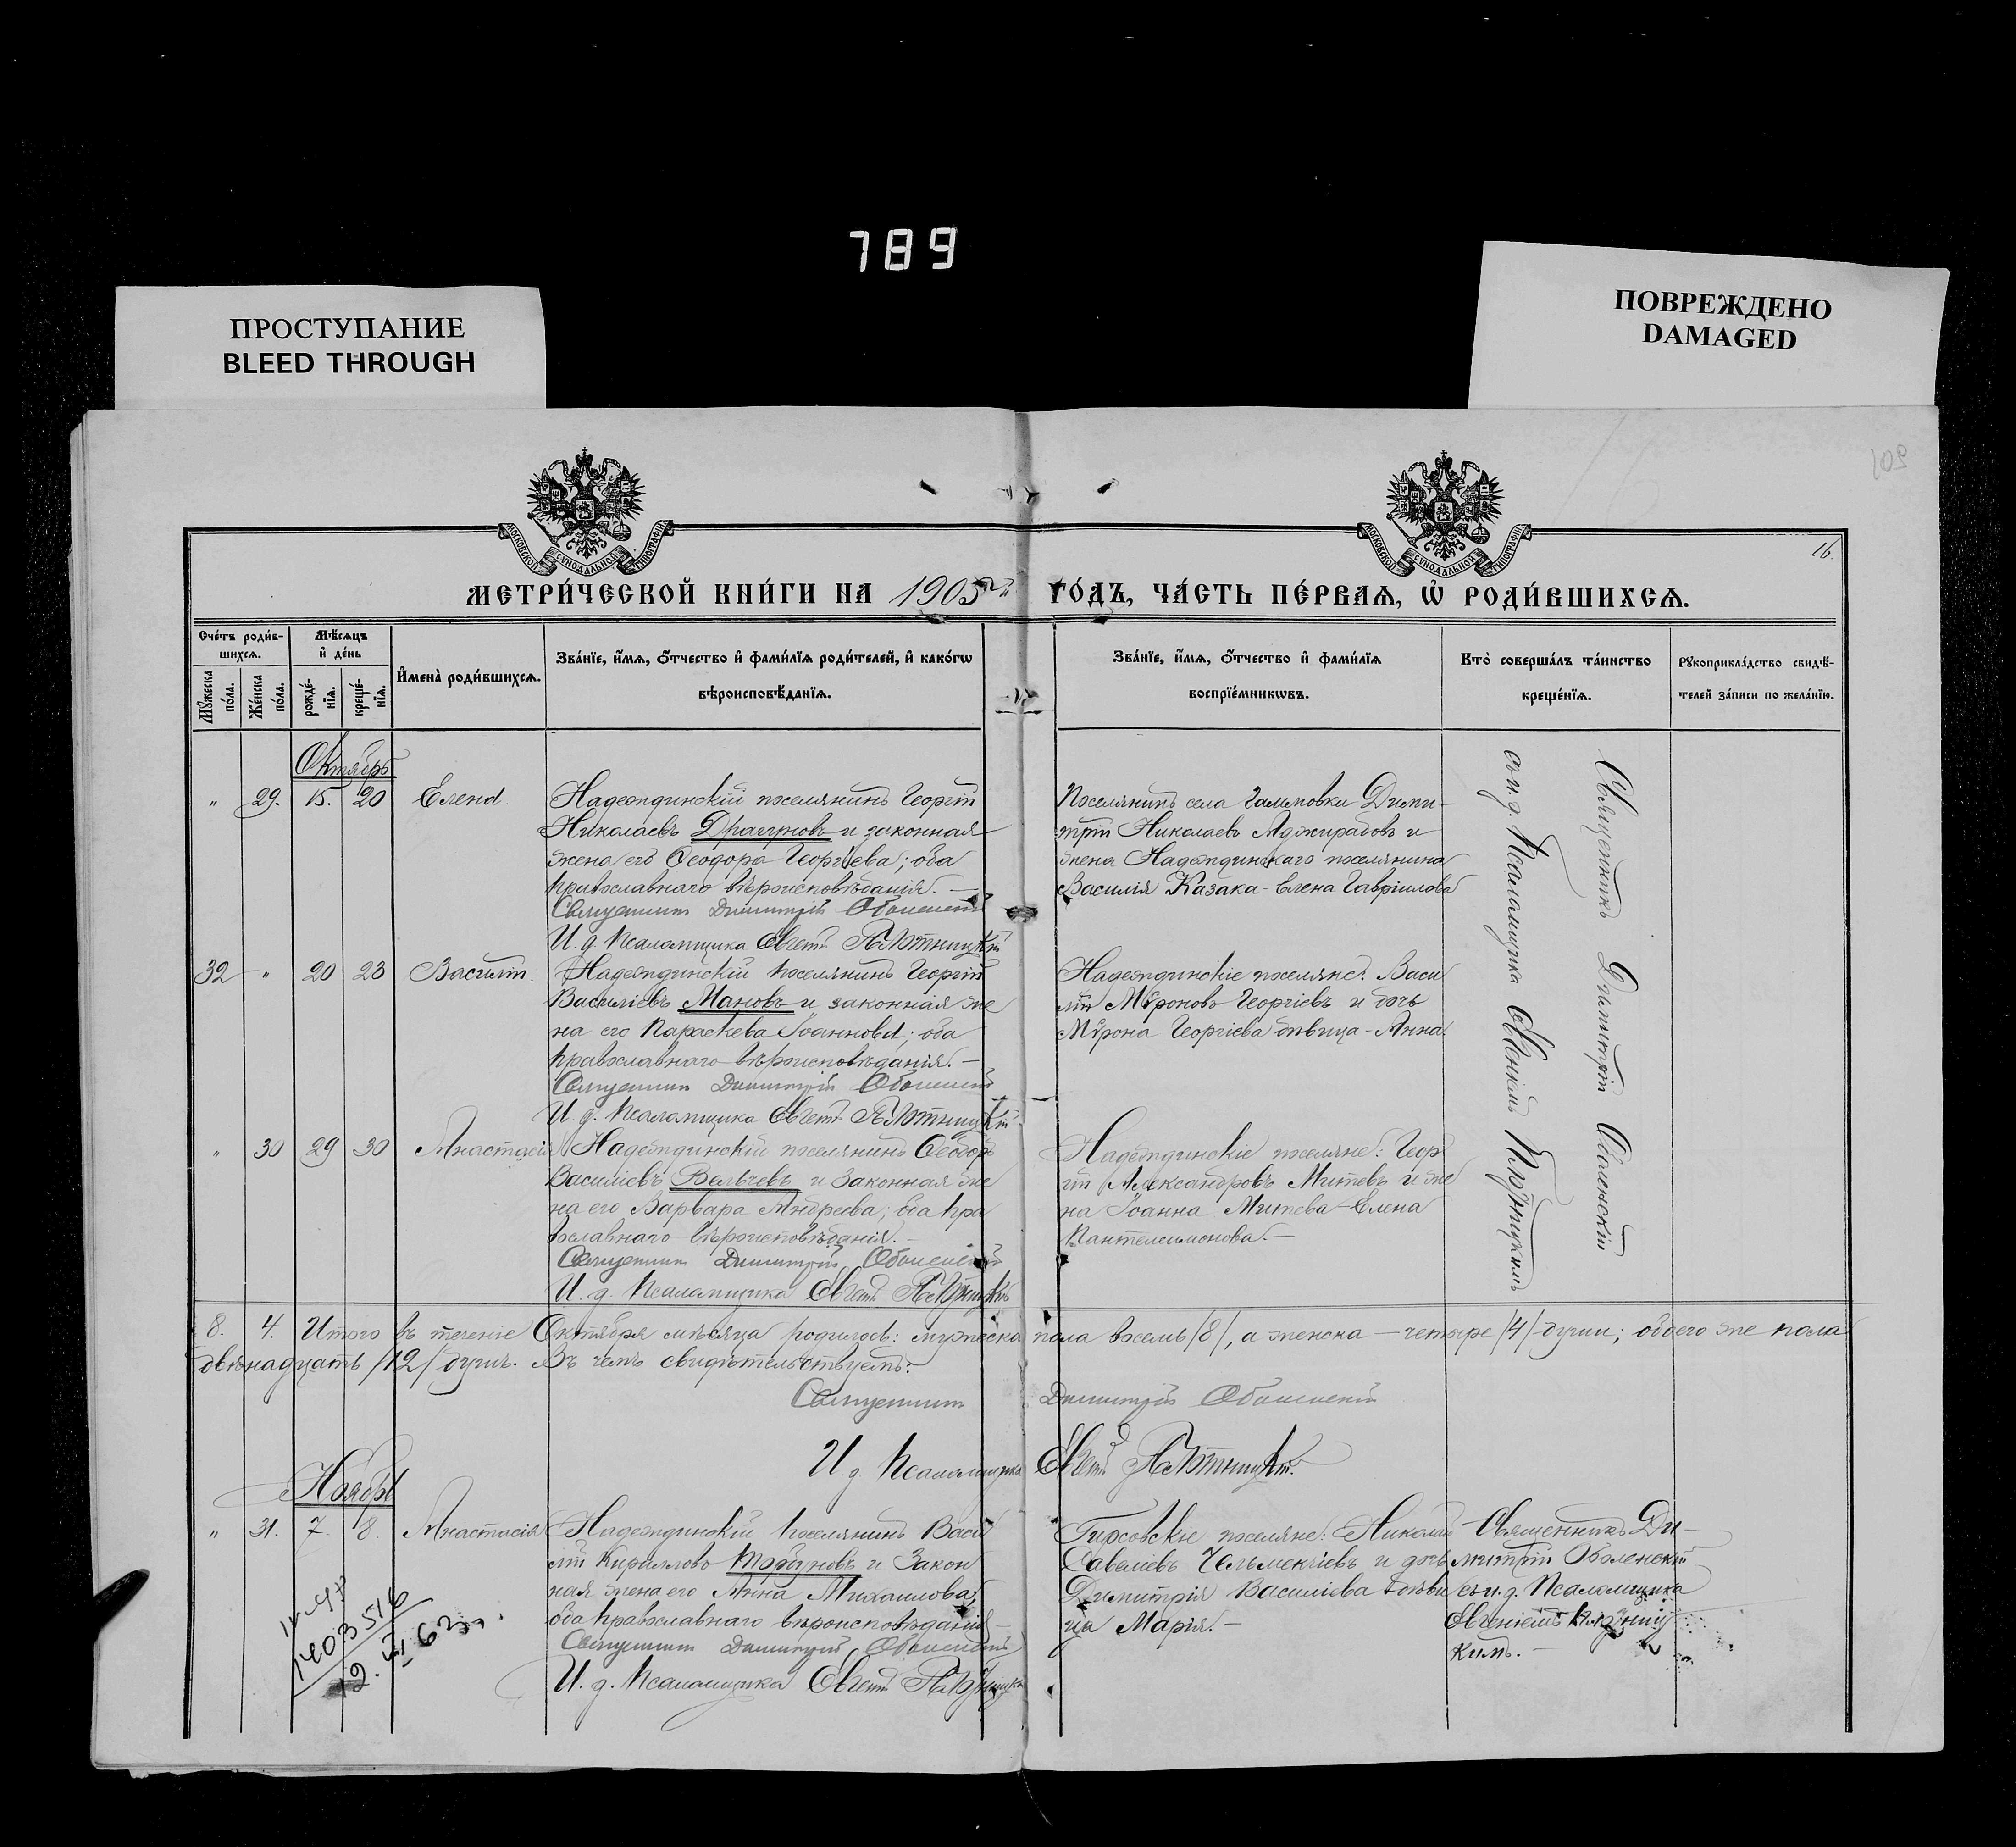 789
ПРОСТУПАНИЕ
BLEED THROUGH
ПОВРЕЖДЕНО
DAMAGED
109
16
МОСКОВСКОЙ СѴНОДАЛЬНОЙ ТИПОГРАФІИ
МОСКОВСКОЙ СѴНОДАЛЬНОЙ ТИПОГРАФІИ
МЕТРИ́ЧЕСКОЙ КНИ́ГИ НА 1905 ГО́ДЪ, ЧА́СТЬ ПЕ́РВАѦ, Ѡ҆ РОДИ́ВШИХСѦ.
Сче́тъ роди́в-
шихсѧ.
Мꙋ́жеска по́ла.
Же́нска по́ла.
Мѣ́сѧцъ
и҆ де́нь
рожде́-
нїѧ.
креще́-
нїѧ.
И҆мена̀ роди́вшихсѧ.
Зва́нїе, и҆́мѧ, ѻ҆́тчество и҆ фами́лїѧ роди́телей, и҆ како́гѡ
вѣроисповѣ́данїѧ.
Зва́нїе, и҆́мѧ, ѻ҆́тчество и҆ фами́лїѧ
воспрїе́мникѡвъ.
Кто̀ соверша́лъ та́инство
креще́нїѧ.
Рꙋкоприкла́дство свидѣ́-
телей за́писи по жела́нїю.
Октябрь
" 29. 15. 20 Елена.
Надеждинскій поселянинъ Георгій
Николаевъ Драгуновъ и законная
жена его Ѳеодора Георгіева; оба
православнаго вѣроисповѣданія. —
Священникъ Димитрій Оболенскій
И. д. Псаломщика Евгеній
Поселянинъ села Дими-
трій Николаевъ Аджирадовъ и
жена Надеждинскаго поселянина
Василія Казака - Елена Гавріилова
32 " 20 23 Василій.
Надеждинскій поселянинъ Георгій
Василіевъ Мановъ и законная же
на его Параскева Іоаннова; оба
православнаго вѣроисповѣданія. —
Священникъ Димитрій Оболенскій
И. д. Псаломщика Евгеній
Надеждинскіе поселяне: Васи
лій Мѵроновъ Георгіевъ и дочь
Мѵрона Георгіева дѣвица - Анна.
" 30 29 30 Анастасія
Надеждинскій поселянинъ Ѳеодоръ
Василіевъ Вельчевъ и законная же
на его Варвара Андреева; оба пра
вославнаго вѣроисповѣданія. —
Священникъ Димитрій Оболенскій
И. д. Псаломщика Евгеній
Надеждинскіе поселяне: Геор
гій Александровъ Митевъ и же
на Іоанна Митева - Елена
Пантелеимонова. —
Священникъ Димитрій Оболенскій
съ и. д. Псаломщика Евгеніемъ
8. 4. Итого въ теченіе Октября мѣсяца родилось: мужеска пола восемь /8/, а женска — четыре /4/ души; обоего же пола
двѣнадцать /12/ душъ. Въ чемъ свидѣтельствуемъ:
Священникъ Димитрій Оболенскій
И. д. Псаломщика Евгеній
Ноябрь
" 31. 7. 8. Анастасія
Надеждинскій поселянинъ Васи
лій Кирилловъ и закон
ная жена его Анна Михаилова;
оба православнаго вѣроисповѣданія —
Священникъ Димитрій Оболенскій
И. д. Псаломщика Евгеній
поселяне: Николай
Савеліевъ Чельмекчіевъ и дочь
Димитрія Василіева дѣви
ца Марія. —
Священникъ Ди-
митрій Оболенскій
съ и. д. Псаломщика
Евгеніемъ
кимъ. —
1403516